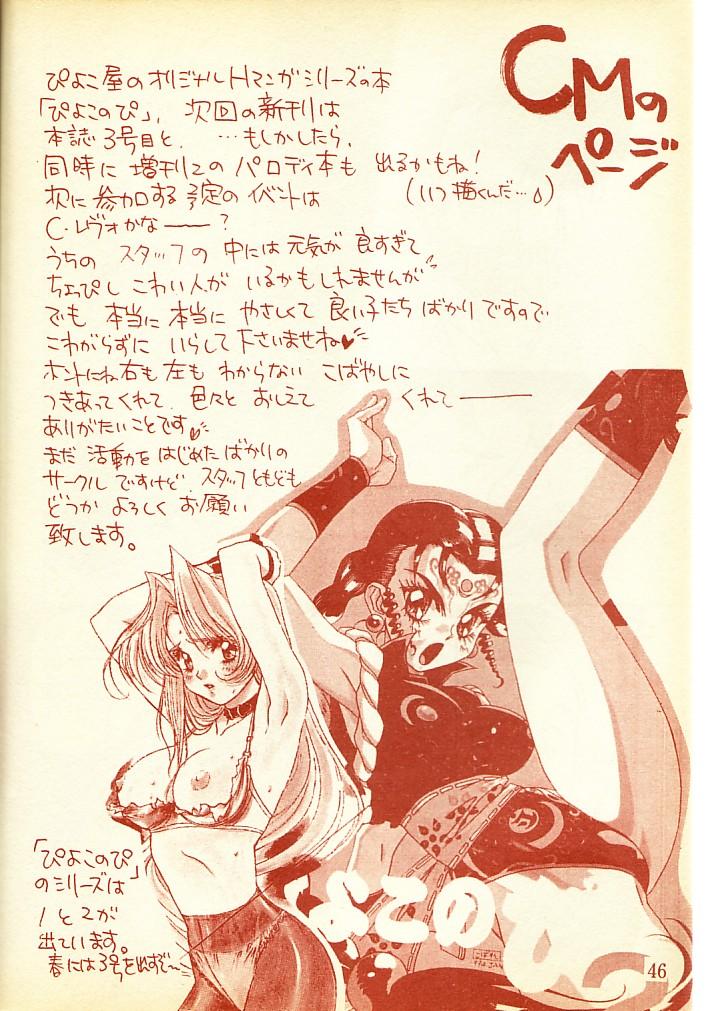 CMの
ページ
ぴよこ屋のオリジナルHマンガシリーズの本
「ぴよこのぴ」、次回の新刊は
本誌3号目と、…もしかしたら、
同時に増刊2のパロディ本も出るかもね!
(いつ描くんだ…)
次に参加する予定のイベントは
C・レヴォかな——?
うちの スタッフの 中には 元気が 良すぎて
ちょっぴし こわい人が いるかもしれませんが
でも 本当に 本当に やさしくて 良い子たち ばかり ですので
こわがらずに いらして下さいませね♥
ホントにね 右も 左も わからない こばやしに
つきあってくれて、色々と おしえて くれて——
ありがたいことです♥
まだ 活動を はじめた ばかりの
サークル ですけど、スタッフともども
どうか よろしく お願い
致します。
「ぴよこのぴ」
のシリーズは
1と2が
出ています。
春には3号を出すぞ〜
ぴよこのぴ
46